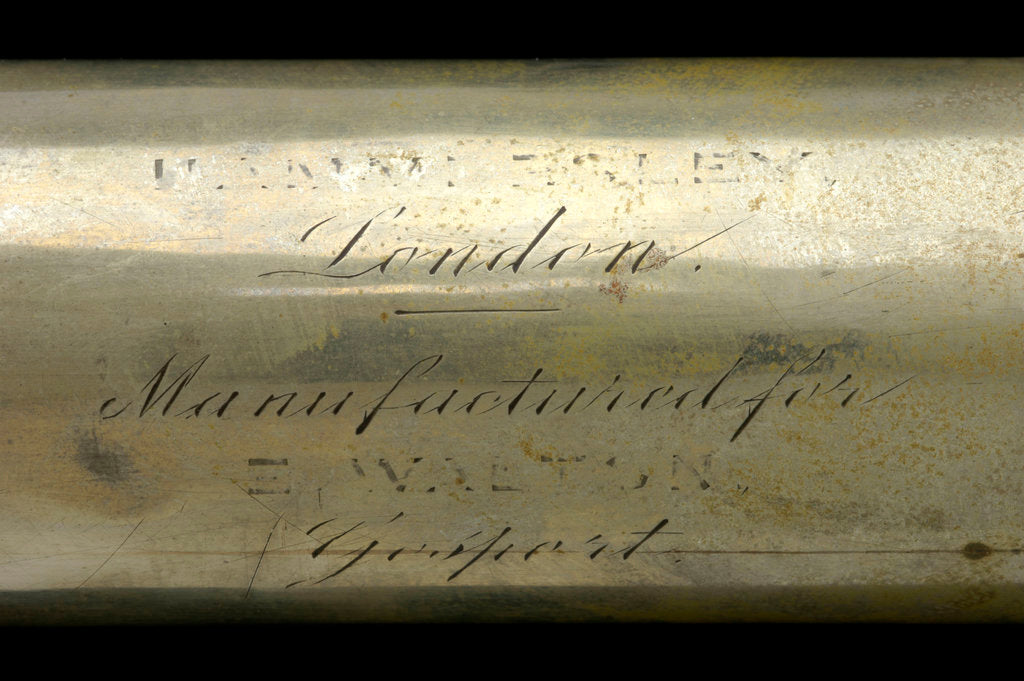 London.
Manufactured for
E. WALTON,
Gosport.